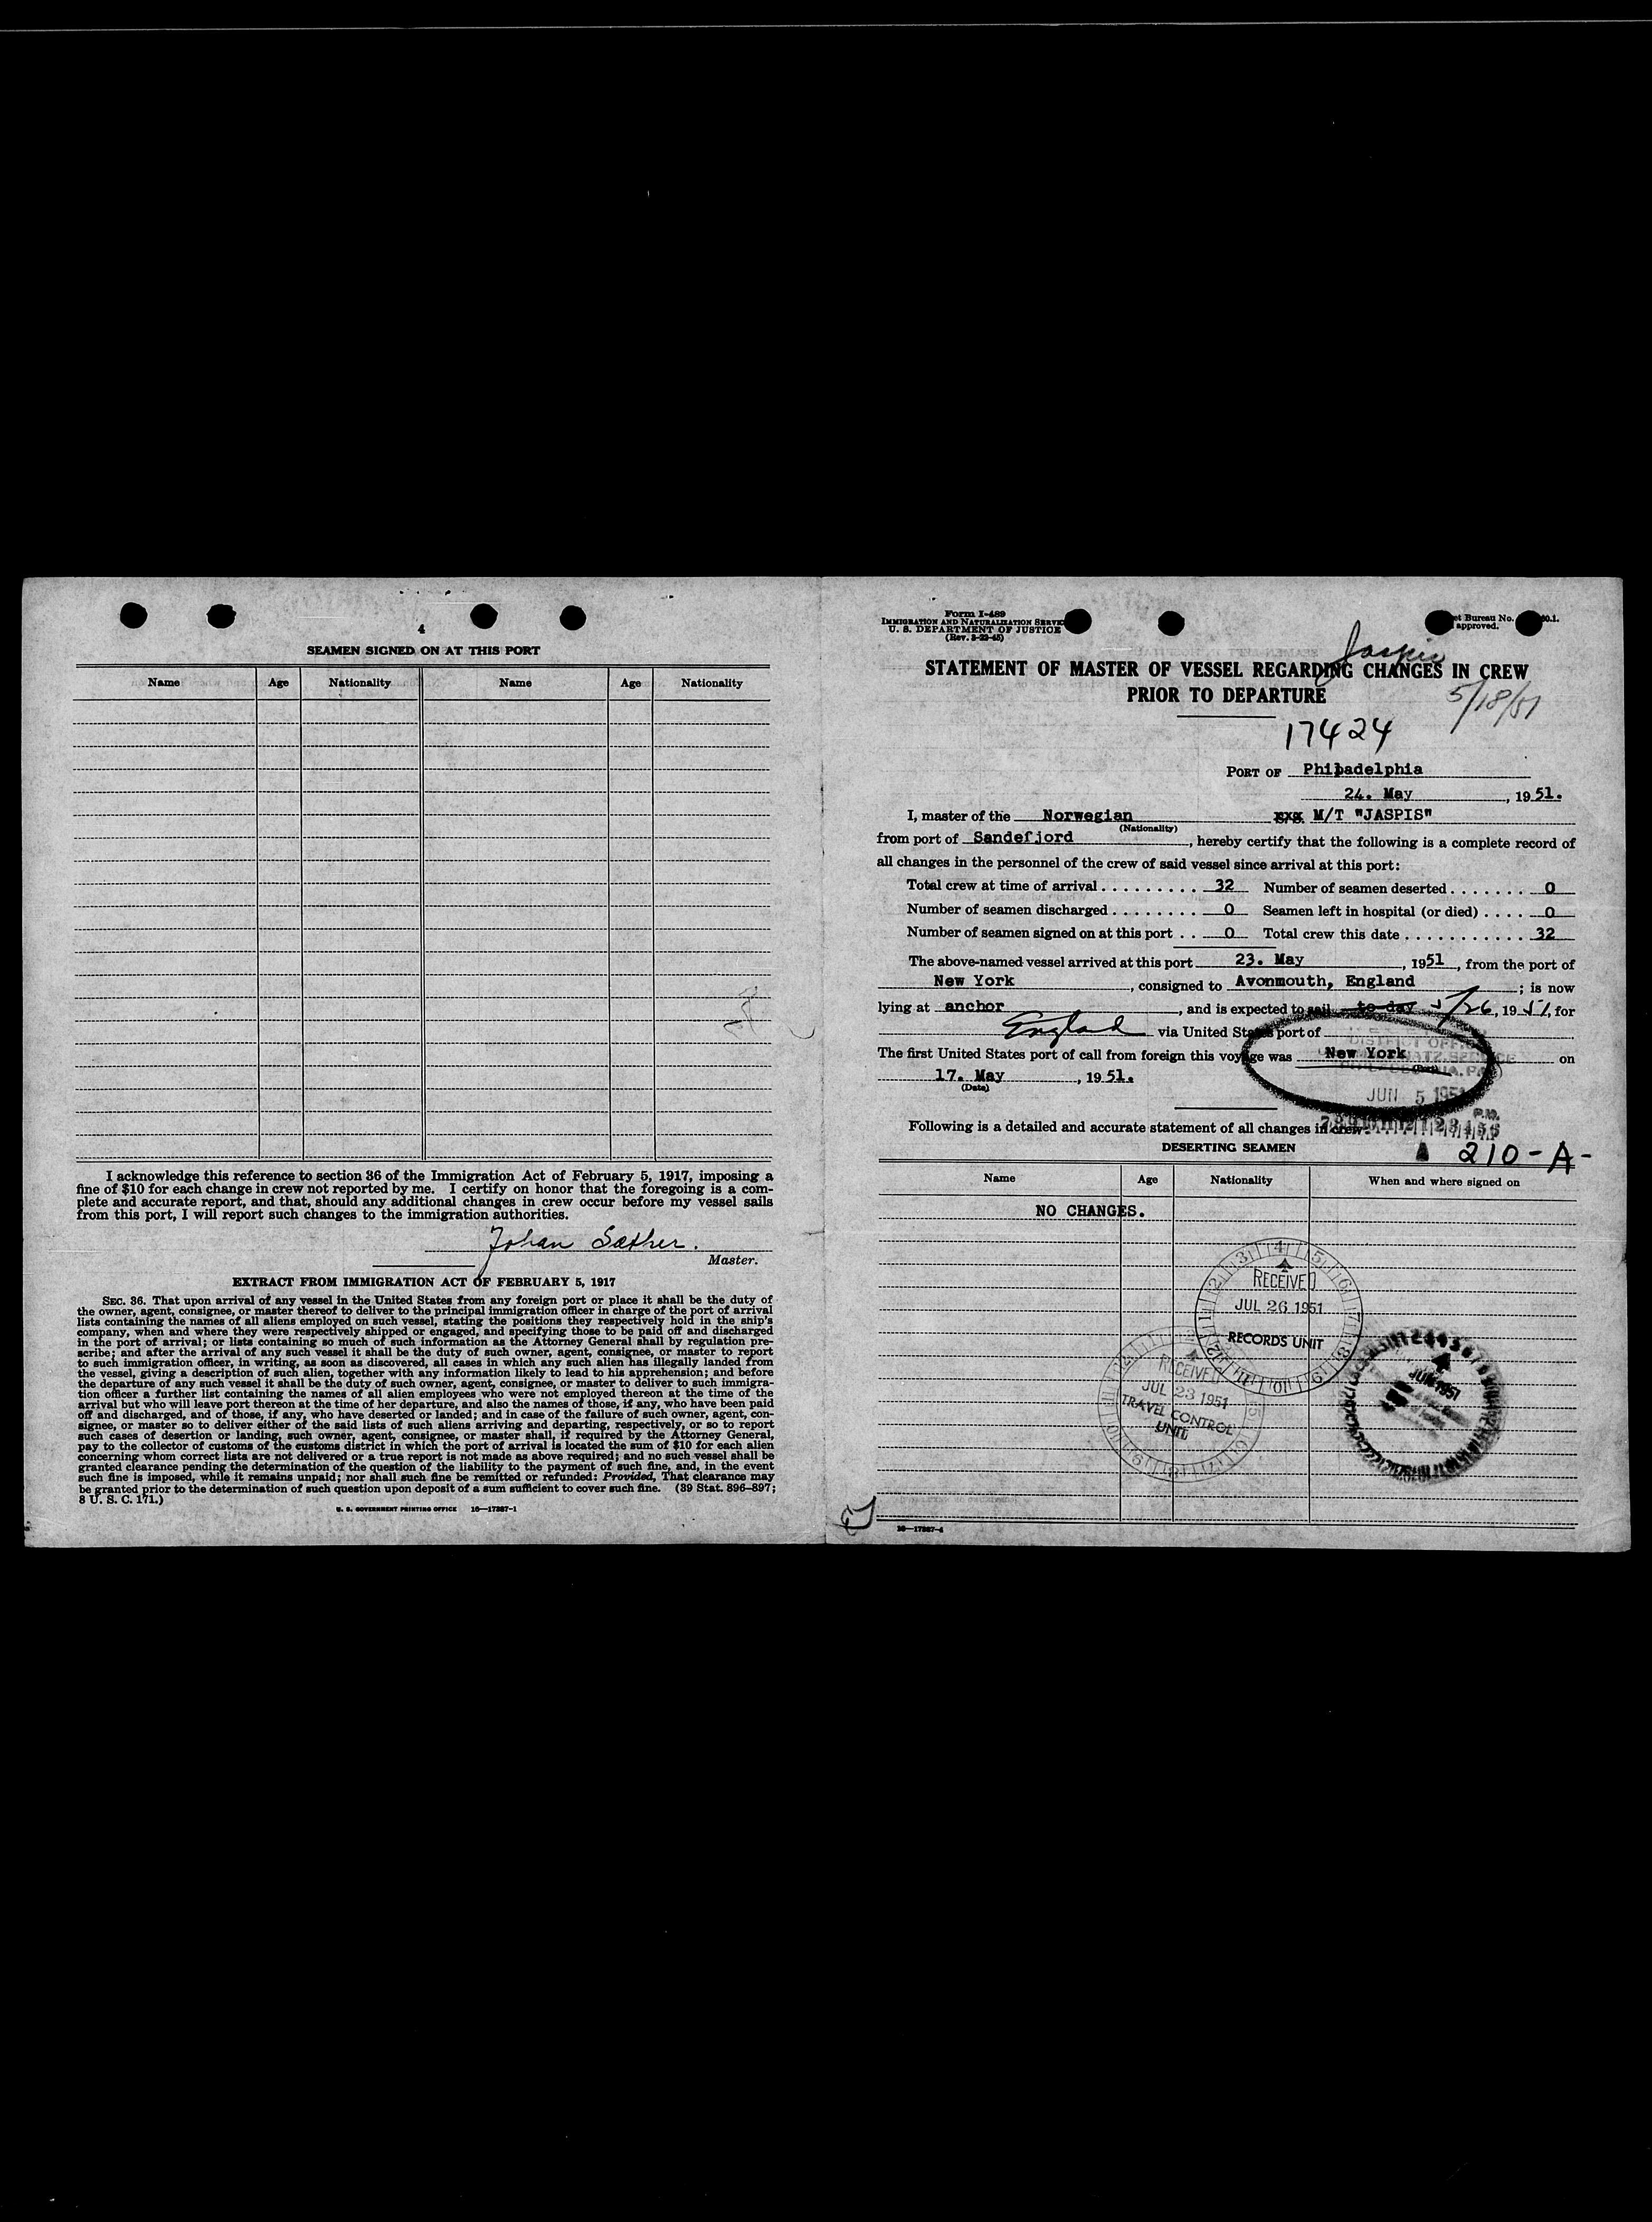 4
SEAMEN SIGNED ON AT THIS PORT
Name Age Nationality Name Age Nationality
I acknowledge this reference to section 36 of the Immigration Act of February 5, 1917, imposing a
fine of $10 for each change in crew not reported by me. I certify on honor that the foregoing is a com-
plete and accurate report, and that, should any additional changes in crew occur before my vessel sails
from this port, I will report such changes to the immigration authorities.
Johan Sæther.
Master.
EXTRACT FROM IMMIGRATION ACT OF FEBRUARY 5, 1917
SEC. 36. That upon arrival of any vessel in the United States from any foreign port or place it shall be the duty of
the owner, agent, consignee, or master thereof to deliver to the principal immigration officer in charge of the port of arrival
lists containing the names of all aliens employed on such vessel, stating the positions they respectively hold in the ship's
company, when and where they were respectively shipped or engaged, and specifying those to be paid off and discharged
in the port of arrival; or lists containing so much of such information as the Attorney General shall by regulation pre-
scribe; and after the arrival of any such vessel it shall be the duty of such owner, agent, consignee, or master to report
to such immigration officer, in writing, as soon as discovered, all cases in which any such alien has illegally landed from
the vessel, giving a description of such alien, together with any information likely to lead to his apprehension; and before
the departure of any such vessel it shall be the duty of such owner, agent, consignee, or master to deliver to such immigra-
tion officer a further list containing the names of all alien employees who were not employed thereon at the time of the
arrival but who will leave port thereon at the time of her departure, and also the names of those, if any, who have been paid
off and discharged, and of those, if any, who have deserted or landed; and in case of the failure of such owner, agent, con-
signee, or master so to deliver either of the said lists of such aliens arriving and departing, respectively, or so to report
such cases of desertion or landing, such owner, agent, consignee, or master shall, if required by the Attorney General,
pay to the collector of customs of the customs district in which the port of arrival is located the sum of $10 for each alien
concerning whom correct lists are not delivered or a true report is not made as above required; and no such vessel shall be
granted clearance pending the determination of the question of the liability to the payment of such fine, and, in the event
such fine is imposed, while it remains unpaid; nor shall such fine be remitted or refunded: Provided, That clearance may
be granted prior to the determination of such question upon deposit of a sum sufficient to cover such fine. (39 Stat. 896-897;
8 U. S. C. 171.)
U. S. GOVERNMENT PRINTING OFFICE 16—17387-1
Form I-489
IMMIGRATION AND NATURALIZATION SERVIC
U. S. DEPARTMENT OF JUSTICE
(Rev. 3-22-45)
et Bureau No. 0.1.
approved.
Jaspis
STATEMENT OF MASTER OF VESSEL REGARDING CHANGES IN CREW
PRIOR TO DEPARTURE
5/18/51
17424
PORT OF Philadelphia
24. May, 1951.
I, master of the Norwegian xxx M/T "JASPIS"
(Nationality)
from port of Sandefjord, hereby certify that the following is a complete record of
all changes in the personnel of the crew of said vessel since arrival at this port:
Total crew at time of arrival . . . . . . . . . 32 Number of seamen deserted . . . . . . . 0
Number of seamen discharged . . . . . . . . 0 Seamen left in hospital (or died) . . . . 0
Number of seamen signed on at this port . . 0 Total crew this date . . . . . . . . . . . 32
The above-named vessel arrived at this port 23. May, 1951, from the port of
New York, consigned to Avonmouth, England; is now
lying at anchor, and is expected to sail to day 5/26, 1951, for
Englad via United States port of
The first United States port of call from foreign this voyage was New York on
(Port)
17. May, 1951.
(Date)
DISTRICT OFFICE
JUN 5 1951
P.M.
Following is a detailed and accurate statement of all changes in crew:
DESERTING SEAMEN
210-A-
Name Age Nationality When and where signed on
NO CHANGES.
RECEIVED
JUL 26 1951
RECORDS UNIT
RECEIVED
JUL 23 1951
TRAVEL CONTROL
UNIT
JUN 1951
16—17387-4